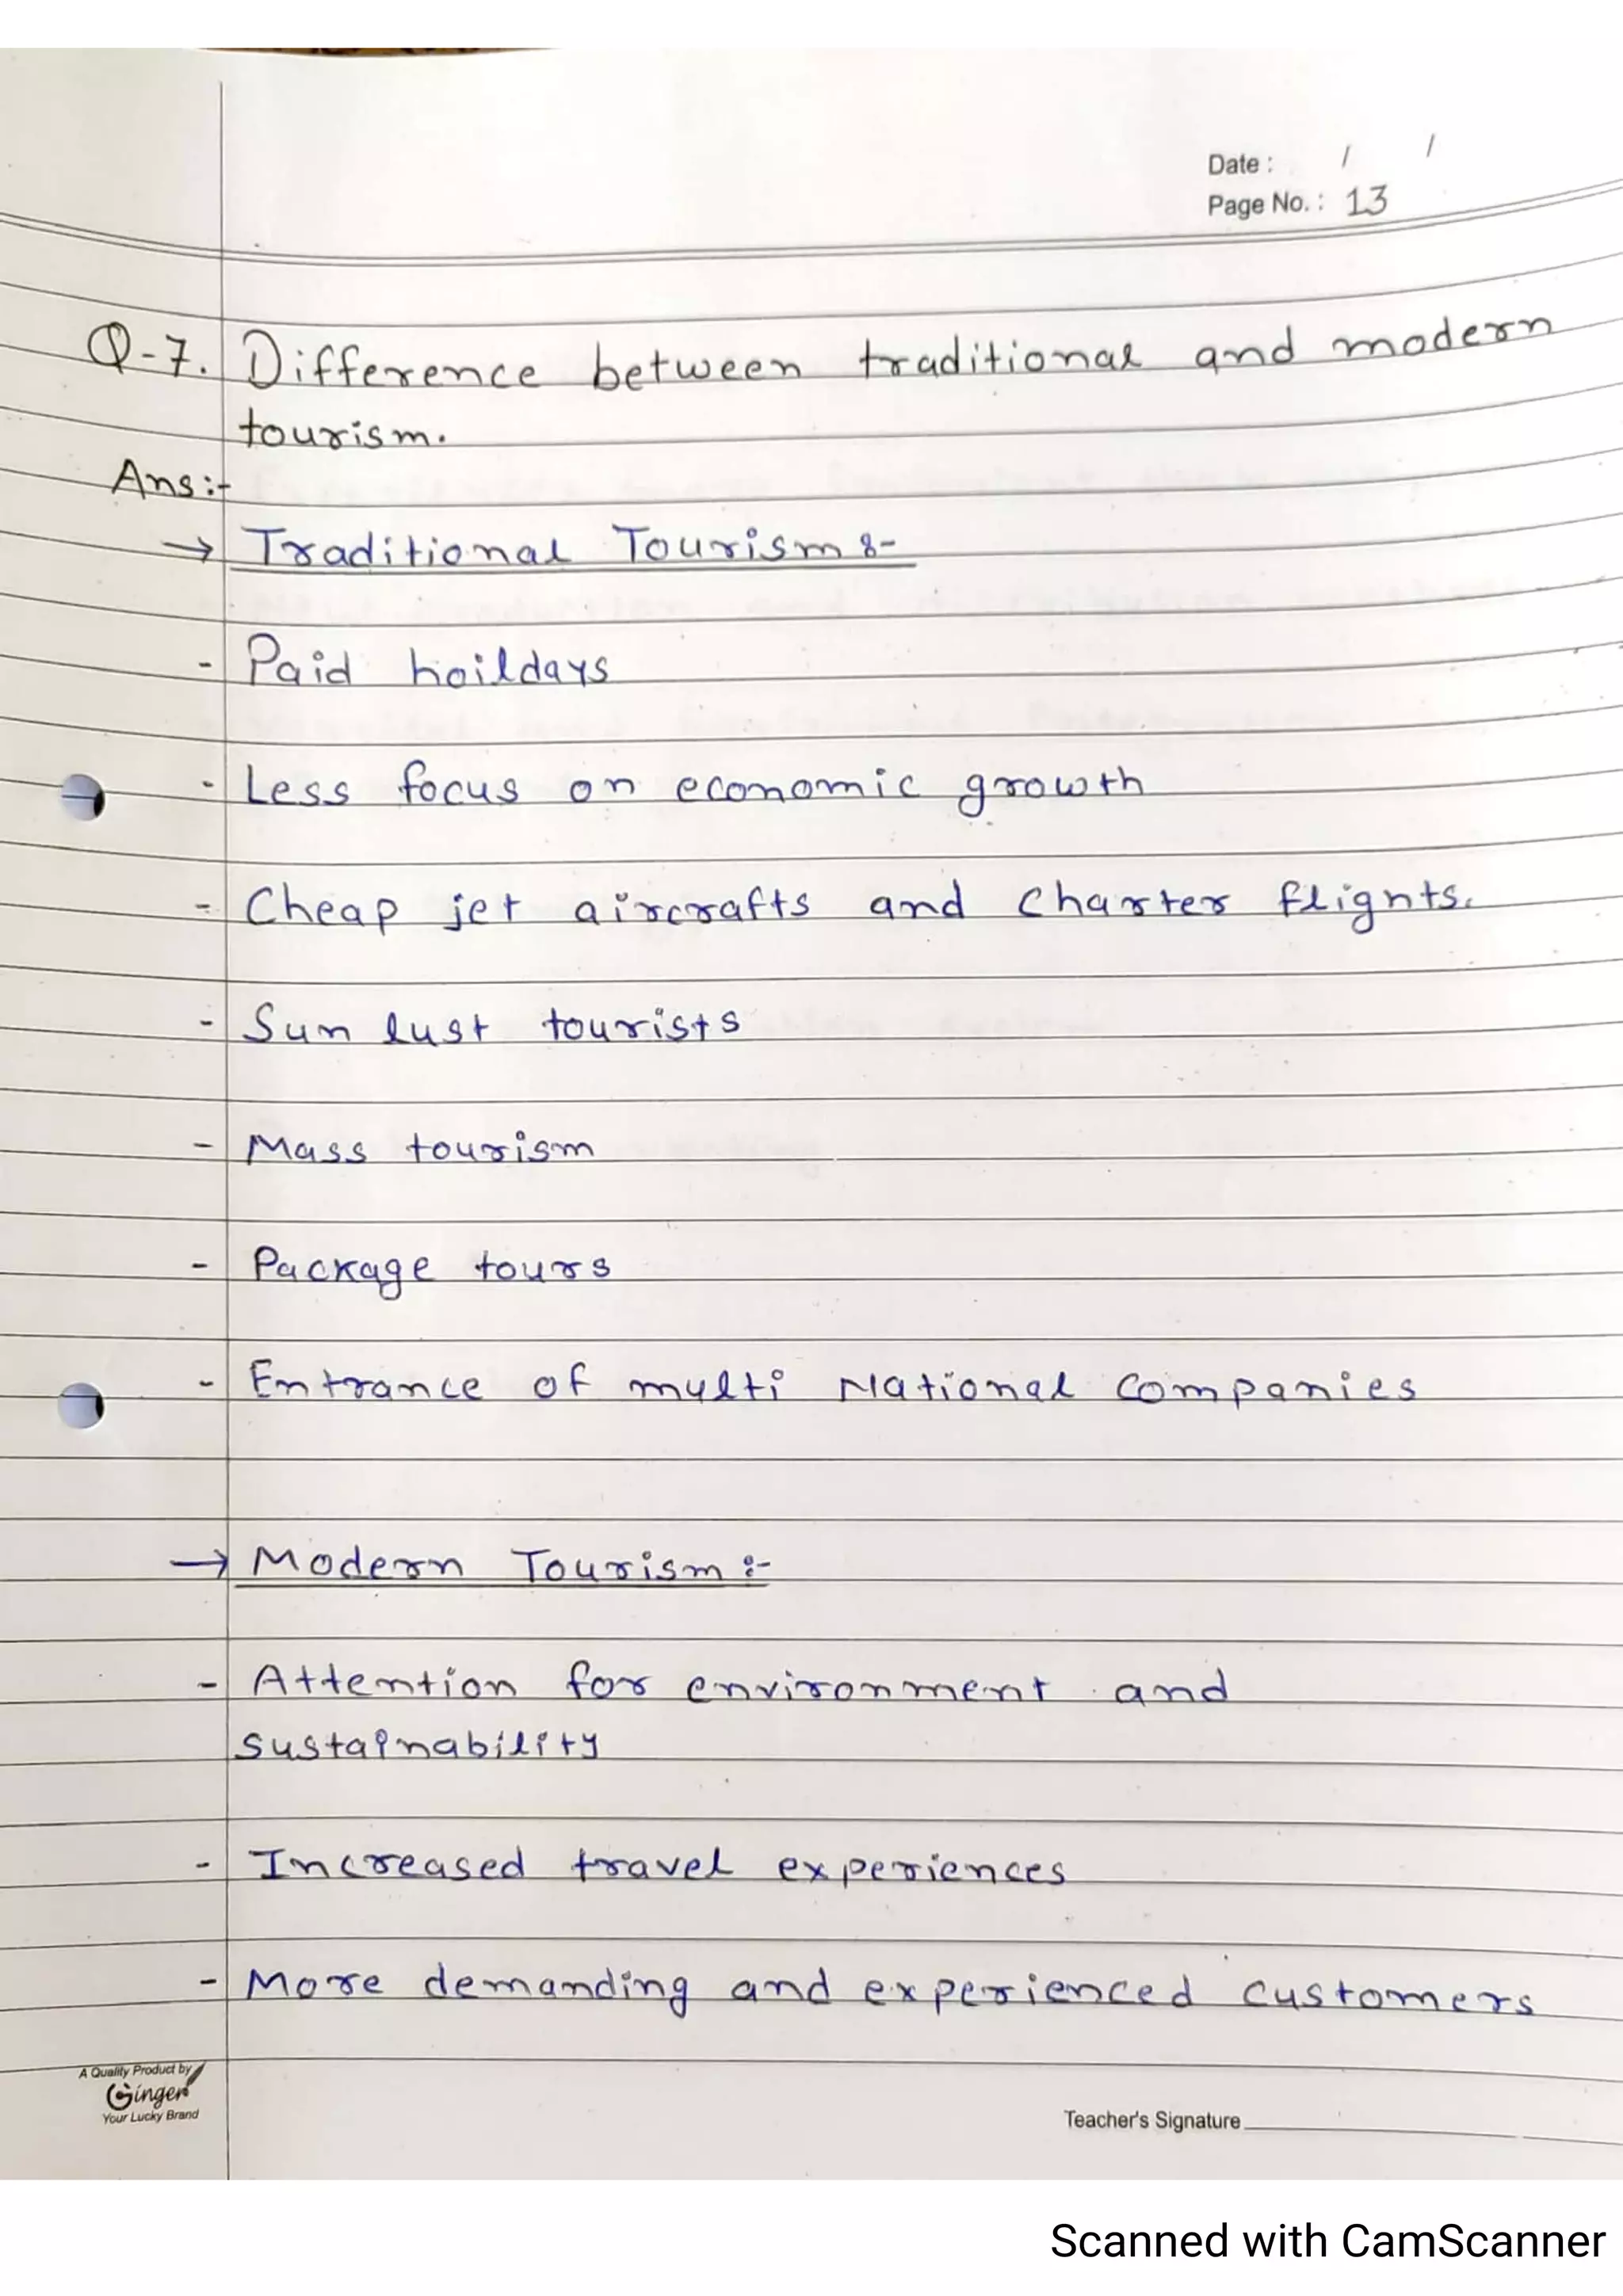 Date : / /
Page No. : 13
Q-7. Difference between traditional and modern
tourism.
Ans:-
→ Traditional Tourism :-
- Paid hoildays
- Less focus on economic growth
- Cheap jet aircrafts and charter flights.
- Sun lust tourists
- Mass tourism
- Package tours
- Entrance of multi National companies
→ Modern Tourism :-
- Attention for environment and
sustainability
- Increased travel experiences
- More demanding and experienced customers
A Quality Product by
Ginger
Your Lucky Brand
Teacher's Signature
Scanned with CamScanner